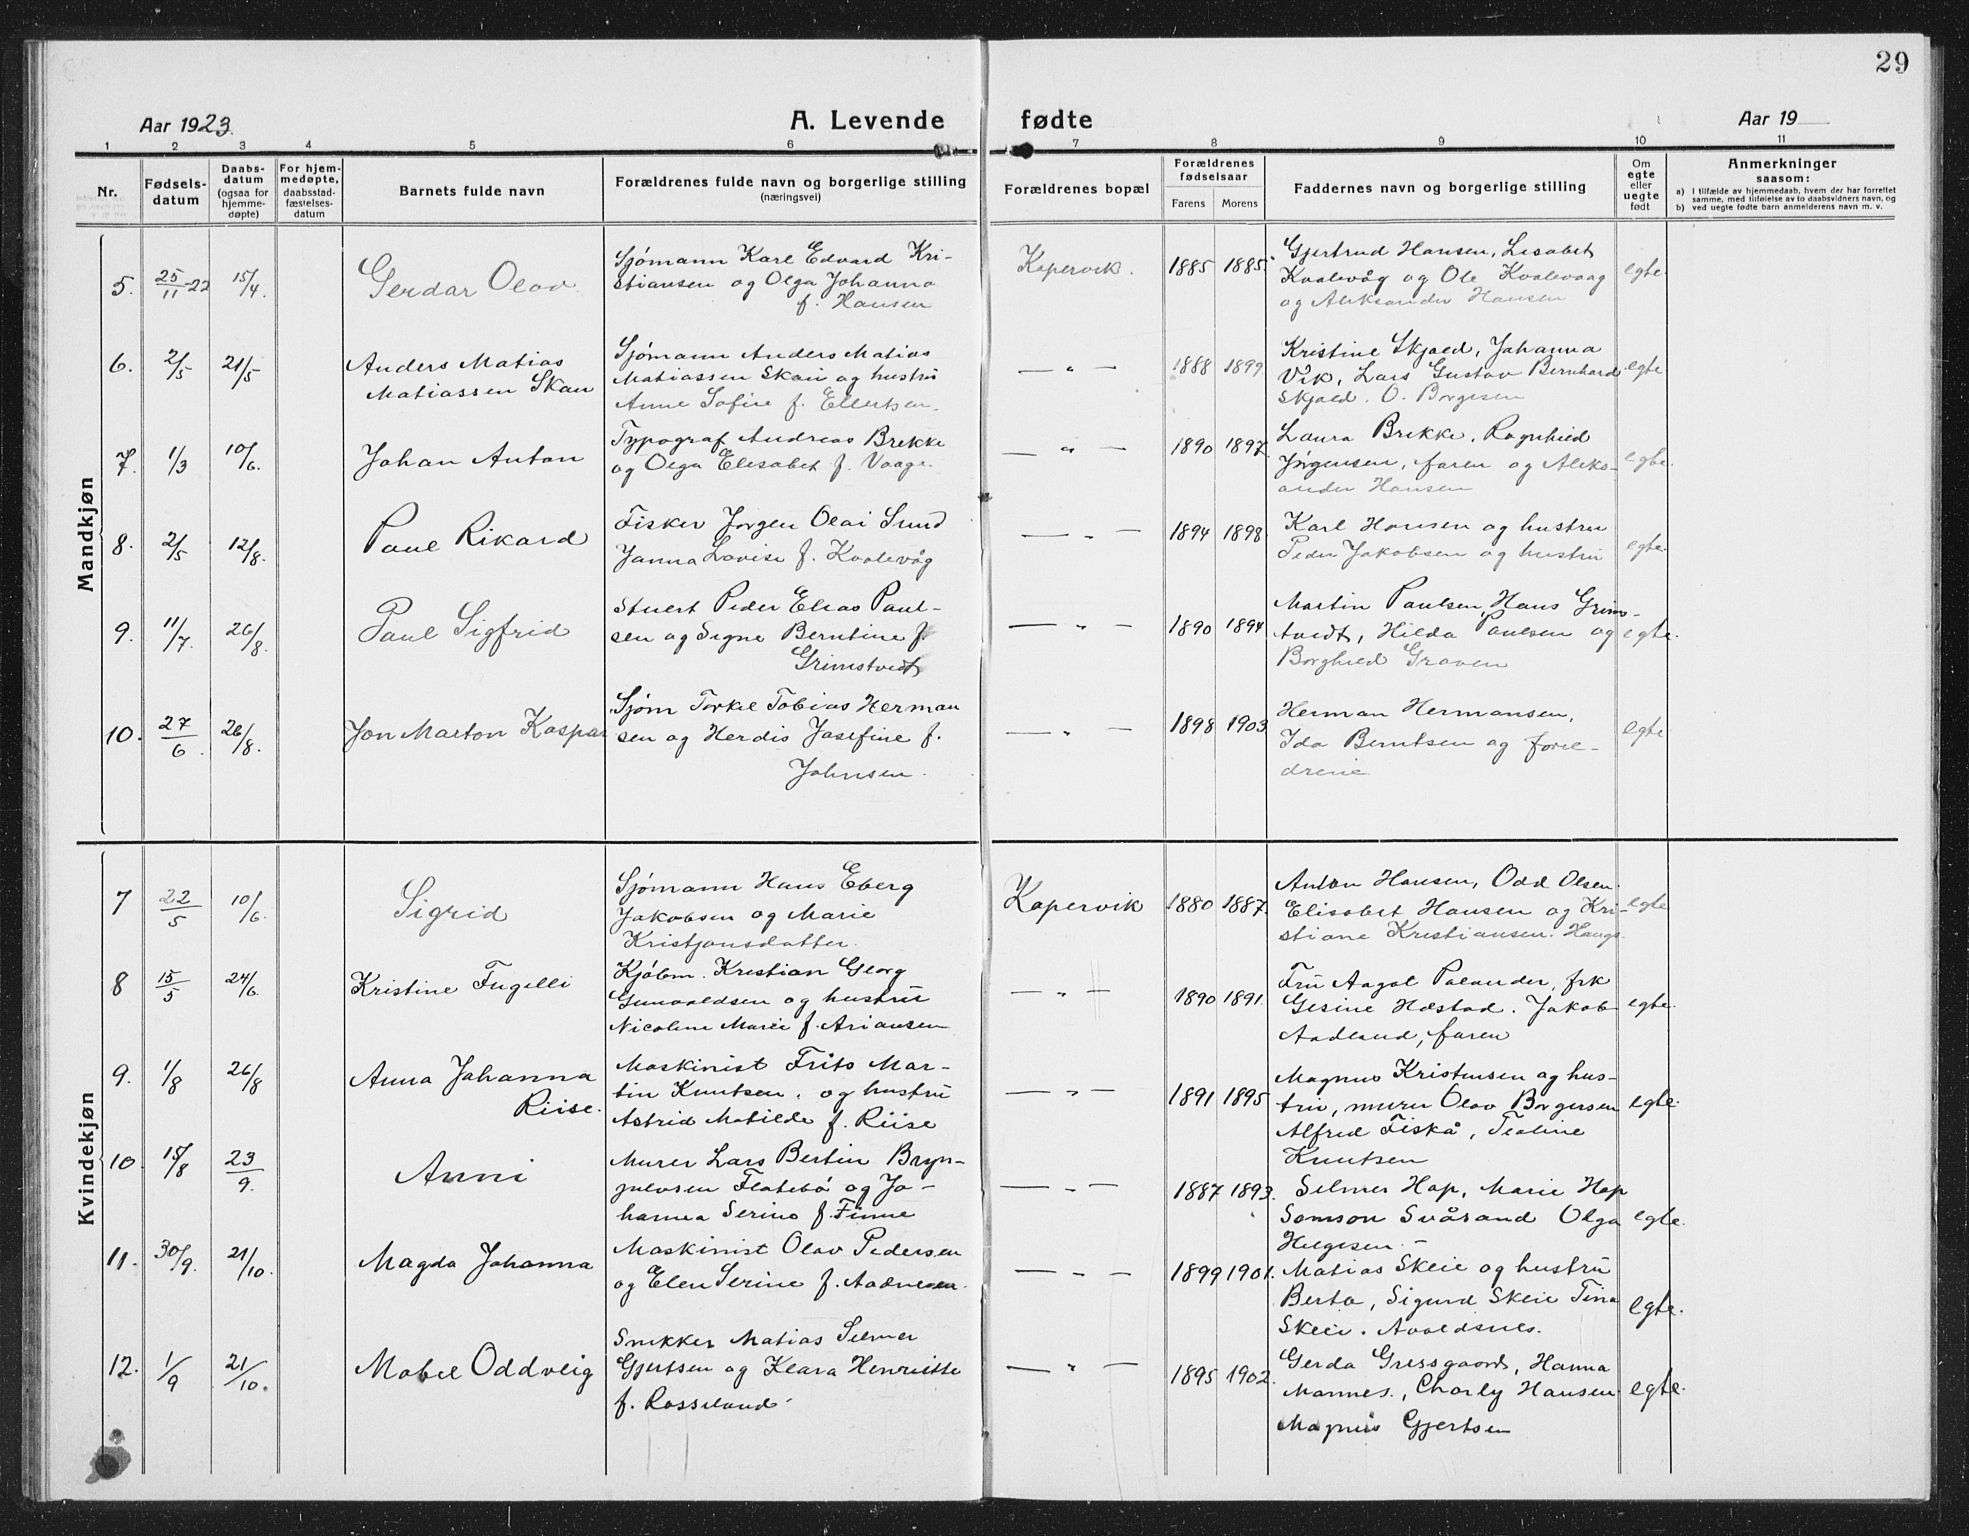 29
Aar 1923.
A. Levende fødte
Aar 19
1 2 3 4 5 6 7 8 9 10 11
Nr.
Fødselsdatum
Daabsdatum (ogsaa for hjemmedøpte)
For hjemmedøpte, daabsstadfæstelsesdatum
Barnets fulde navn
Forældrenes fulde navn og borgerlige stilling (næringsvei)
Forældrenes bopæl
Forældrenes fødselsaar
Farens Morens
Faddernes navn og borgerlige stilling
Om egte eller uegte født
Anmerkninger saasom:
a) I tilfælde av hjemmedaab, hvem der har forrettet samme, med tilføielse av to daabsvidners navn, og
b) ved uegte fødte barn anmelderens navn m. v.
Mandkjøn
5. 25/11-22 15/4. Gerdar Olav
Sjømann Karl Edvard Kri-
stiansen og Olga Johanna
f. Hansen
Kopervik. 1885 1885.
Gjertrud Hansen, Lisabet
Kvalevåg og Ole Kvalevaag
og Aleksander Hansen
egte.
6. 2/5 21/5 Anders Matias
Matiassen Skau
Sjømann Anders Matias
Matiassen Skau og hustru
Anne Sofie f. Ellertsen.
— " — 1888 1899
Kristine Skjold, Johanna
Vik, Lars Gustav Bernhard
Skjold. O. Borgesen
egte
7. 1/3 10/6. Johan Anton
Typograf Andreas Brekke
og Olga Elisabet f. Vaage.
— " — 1890 1897
Laura Brekke, Ragnhild
Jørgensen, faren og Aleks-
ander Hansen
egte.
8. 2/5 12/8. Paul Rikard
Fisker Jørgen Olai Sund
Janna Lovise f. Kvalevåg
— " — 1894 1898
Karl Hansen og hustru
Peder Jakobsen og hustru
egte.
9. 11/7. 26/8. Paul Sigfrid
Stuert Peder Elias Paul-
sen og Signe Berntine f.
Grimstvedt
— " — 1890 1894
Martin Paulsen, Hans Grims-
tvedt, Hilda Paulsen og
Borghild Graven
egte.
10. 27/6 26/8. Jon Marton Kaspar
Sjøm Torkel Tobias Herman
sen og Herdis Josefine f.
Johnsen.
— " — 1898 1903
Herman Hermansen,
Ida Berntsen og forel-
drene
egte
Kvindekjøn
7 22/5 10/6. Sigrid
Sjømann Hans Eberg
Jakobsen og Marie
Kristjansdatter.
Kopervik 1880 1887.
Anton Hansen, Odd Olsen.
Elisabet Hansen og Kri-
stiane Kristiansen. Haugs.
egte
8 15/5 24/6. Kristine Fugelli
Kjøbm. Kristian Georg
Gunvaldsen og hustru
Nicoline Marie f. Ariansen
— " — 1890 1891.
Fru Aagot Polander, frk
Gesine Hæstad. Jakob
Aadland, faren
egte.
9. 1/8 26/8 Anna Johanna
Riise.
Maskinist Frits Mar-
tin Knutsen. og hustru
Astrid Matilde f. Riise
— " — 1891 1895
Magnus Kristensen og hus-
tru, murer Olav Borgersen
Alfred Fiskå, Teoline
Knutsen
egte.
10. 15/8 23/9. Anni
Murer Lars Bertin Bryn-
julvsen Flatebø og Jo-
hanna Serine f. Finne
— " — 1887 1893.
Selmer Hop, Marie Hop
Samson Svårand Olga
Helgesen. —
egte.
11. 30/9. 21/10. Magda Johanna
Maskinist Olav Pedersen
og Elen Serine f. Aadnesen.
— " — 1899 1901.
Matias Skeie og hustru
Berta, Sigurd Skeie Tina
Skeie. Avaldsnes.
egte.
12. 1/9 21/10. Mabel Oddveig
Snikker Matias Selmer
Gjertsen og Klara Henriette
f. Rosseland.
— " — 1895 1902.
Gerda Gressgaard, Hanna
Mannes., Charly Hansen
Magnus Gjertsen
egte.